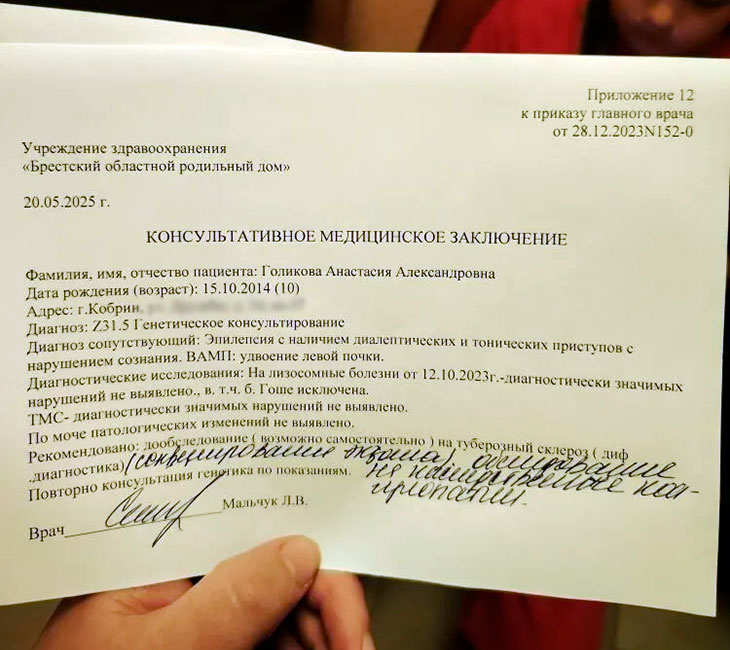 Приложение 12
к приказу главного врача
от 28.12.2023N152-0
Учреждение здравоохранения
«Брестский областной родильный дом»
20.05.2025 г.
КОНСУЛЬТАТИВНОЕ МЕДИЦИНСКОЕ ЗАКЛЮЧЕНИЕ
Фамилия, имя, отчество пациента: Голикова Анастасия Александровна
Дата рождения (возраст): 15.10.2014 (10)
Адрес: г.Кобрин,
Диагноз: Z31.5 Генетическое консультирование
Диагноз сопутствующий: Эпилепсия с наличием диалептических и тонических приступов с
нарушением сознания. ВАМП: удвоение левой почки.
Диагностические исследования: На лизосомные болезни от 12.10.2023г.-диагностически значимых
нарушений не выявлено., в. т.ч. б. Гоше исключена.
ТМС- диагностически значимых нарушений не выявлено.
По моче патологических изменений не выявлено.
Рекомендовано: дообследование ( возможно самостоятельно ) на туберозный склероз ( диф
.диагностика) (секвенирование экзома) обследование
Повторно консультация генетика по показаниям. на наследственные
Врач Мальчук Л.В.